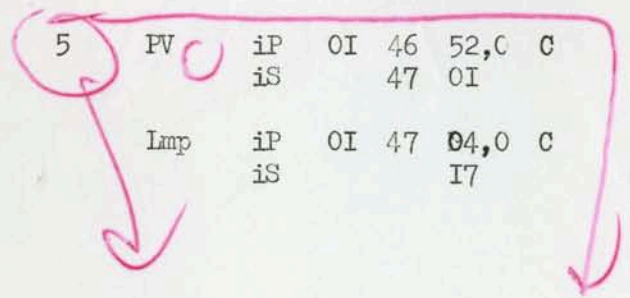 5 PV iP OI 46 52,0 C
iS 47 OI
Lmp iP OI 47 04,0 C
iS I7